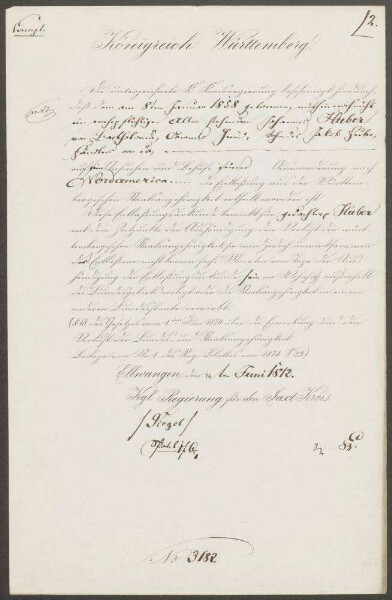 Concept.
2.
Königreich Württemberg.
Die unterzeichnete K. Kreisregierung bescheinigt hiedurch
daß dem am 8ten Januar 1858 geborenen, mithin noch nicht
im wehrpflichtigen Alter stehenden Johannes Huber
von Oberamts Gmünd, Sohn des Jakob Huber,
Händlers von da,
auf Ansuchen und Behufs seiner Auswanderung nach
Nordamerica die Entlassung aus der Württem-
bergischen Staatsangehörigkeit ertheilt worden ist.
Diese Entlassungsurkunde bewirkt für gedachten Huber
mit dem Zeitpunkte der Aushändigung den Verlust der würt-
tembergischen Staatsangehörigkeit, sie wird jedoch unwirksam, wenn
der Entlassene nicht binnen sechs Monaten vom Tage der Aus-
händigung der Entlassungsurkunde seinen Wohnsitz außerhalb
des Bundesgebiets verlegt oder die Staatsangehörigkeit in einem
anderen Bundesstaate erwirbt
(§ 18 des Gesetzes vom 1ten Juni 1870 über die Erwerbung und den
Verlust der Bundes- und Staatsangehörigkeit.
Beilage zu Nr. 1 des Reg. Blattes von 1871 S. 29)
Ellwangen, den Juni 1872.
Kgl. Regierung für den Jaxt Kreis
No 3182